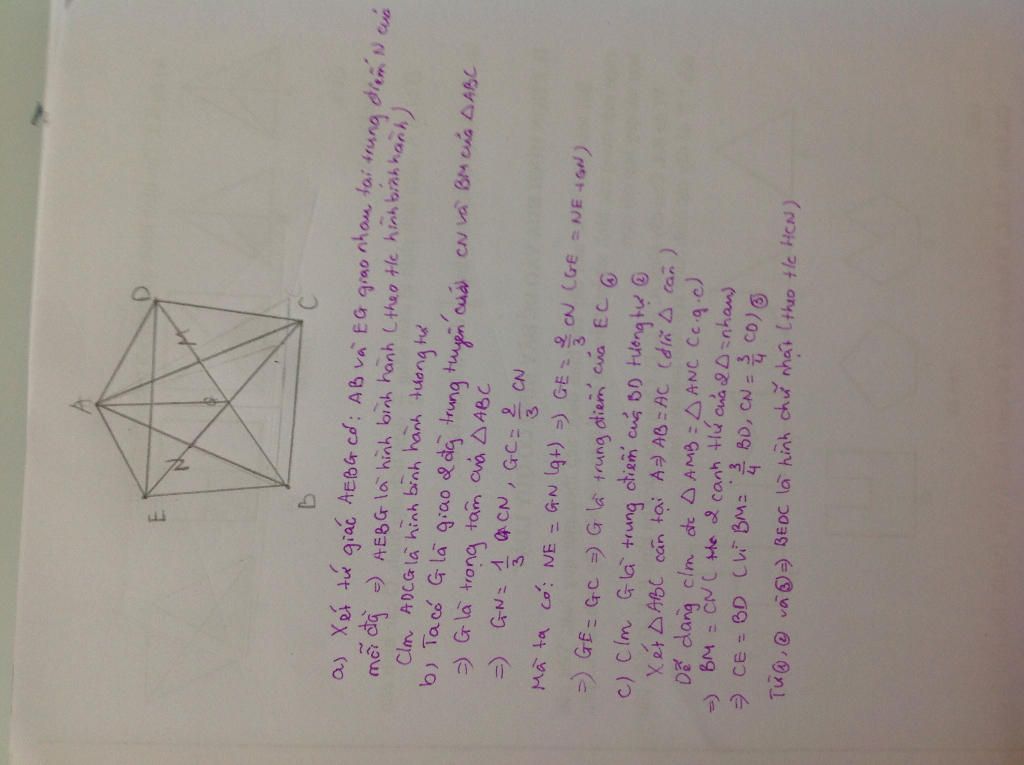 A
E
D
N
M
G
B
C
a) Xét tứ giác AEBG có: AB và EG giao nhau tại trung điểm N của
mỗi đg => AEBG là hình bình hành (theo t/c hình bình hành)
C/m ADCG là hình bình hành tương tự
b) Ta có G là giao 2 đg trung tuyến của CN và BM của △ABC
=> G là trọng tâm của △ABC
=> GN = 1/3 CN, GC = 2/3 CN
Mà ta có: NE = GN (gt) => GE = 2/3 CN (GE = NE + GN)
=> GE = GC => G là trung điểm của EC ①
c) C/m G là trung điểm của BD tương tự ②
Xét △ABC cân tại A => AB = AC (đ/lí △ cân)
Dễ dàng c/m đc △AMB = △ANC (c.g.c)
=> BM = CN (2 cạnh t/ứ của 2△ = nhau)
=> CE = BD (Vì BM = 3/4 BD, CN = 3/4 CD) ③
Từ ①, ② và ③ => BEDC là hình chữ nhật (theo t/c HCN)